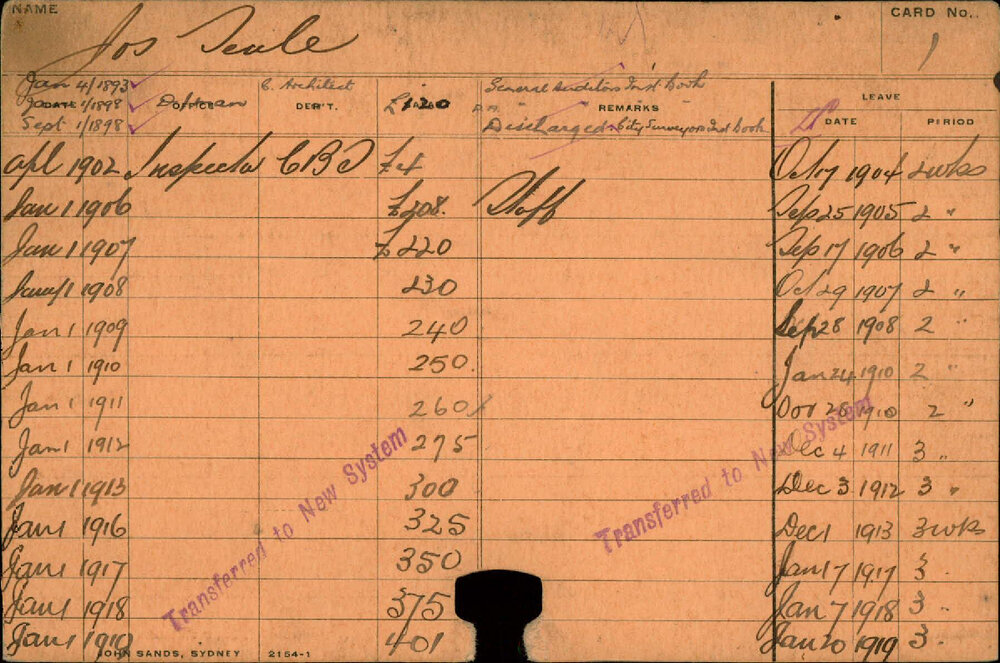 NAME CARD No.
Jos Teale 1
Jan 4/1893 C. Architect General Auditors Ind Book LEAVE
Jan 1/1898 DATE OFFICE DEP'T. £120 P.A. REMARKS DATE PERIOD
Sept 1/1898 Discharged City Surveyors Ind Book
Apl 1902 Inspector CBS £4 Oct 17 1904 2 wks
Jan 1 1906 £208. Staff Sep 25 1905 2 "
Jan 1 1907 £220 Sep 17 1906 2 "
Jany 1 1908 230 Oct 29 1907 2 "
Jan 1 1909 240 Sep 28 1908 2 "
Jan 1 1910 250. Jan 24 1910 2 "
Jan 1 1911 260 Nov 28 1910 2 "
Jan 1 1912 275 Dec 4 1911 3 "
Jan 1 1913 300 Dec 3 1912 3 "
Jan 1 1916 325 Dec 1 1913 3 wks
Jan 1 1917 350 Jan 17 1917 3
Jan 1 1918 375 Jan 7 1918 3 "
Jan 1 1919 401 Jan 20 1919 3 "
Transferred to New System
Transferred to New System
JOHN SANDS, SYDNEY 2154-1